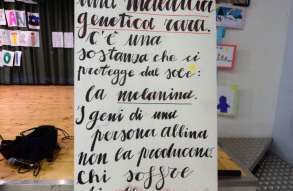 una malattia
genetica rara.
C'è una
sostanza che ci
protegge dal sole:
la melanina.
I geni di una
persona albina
non la producono.
Chi soffre